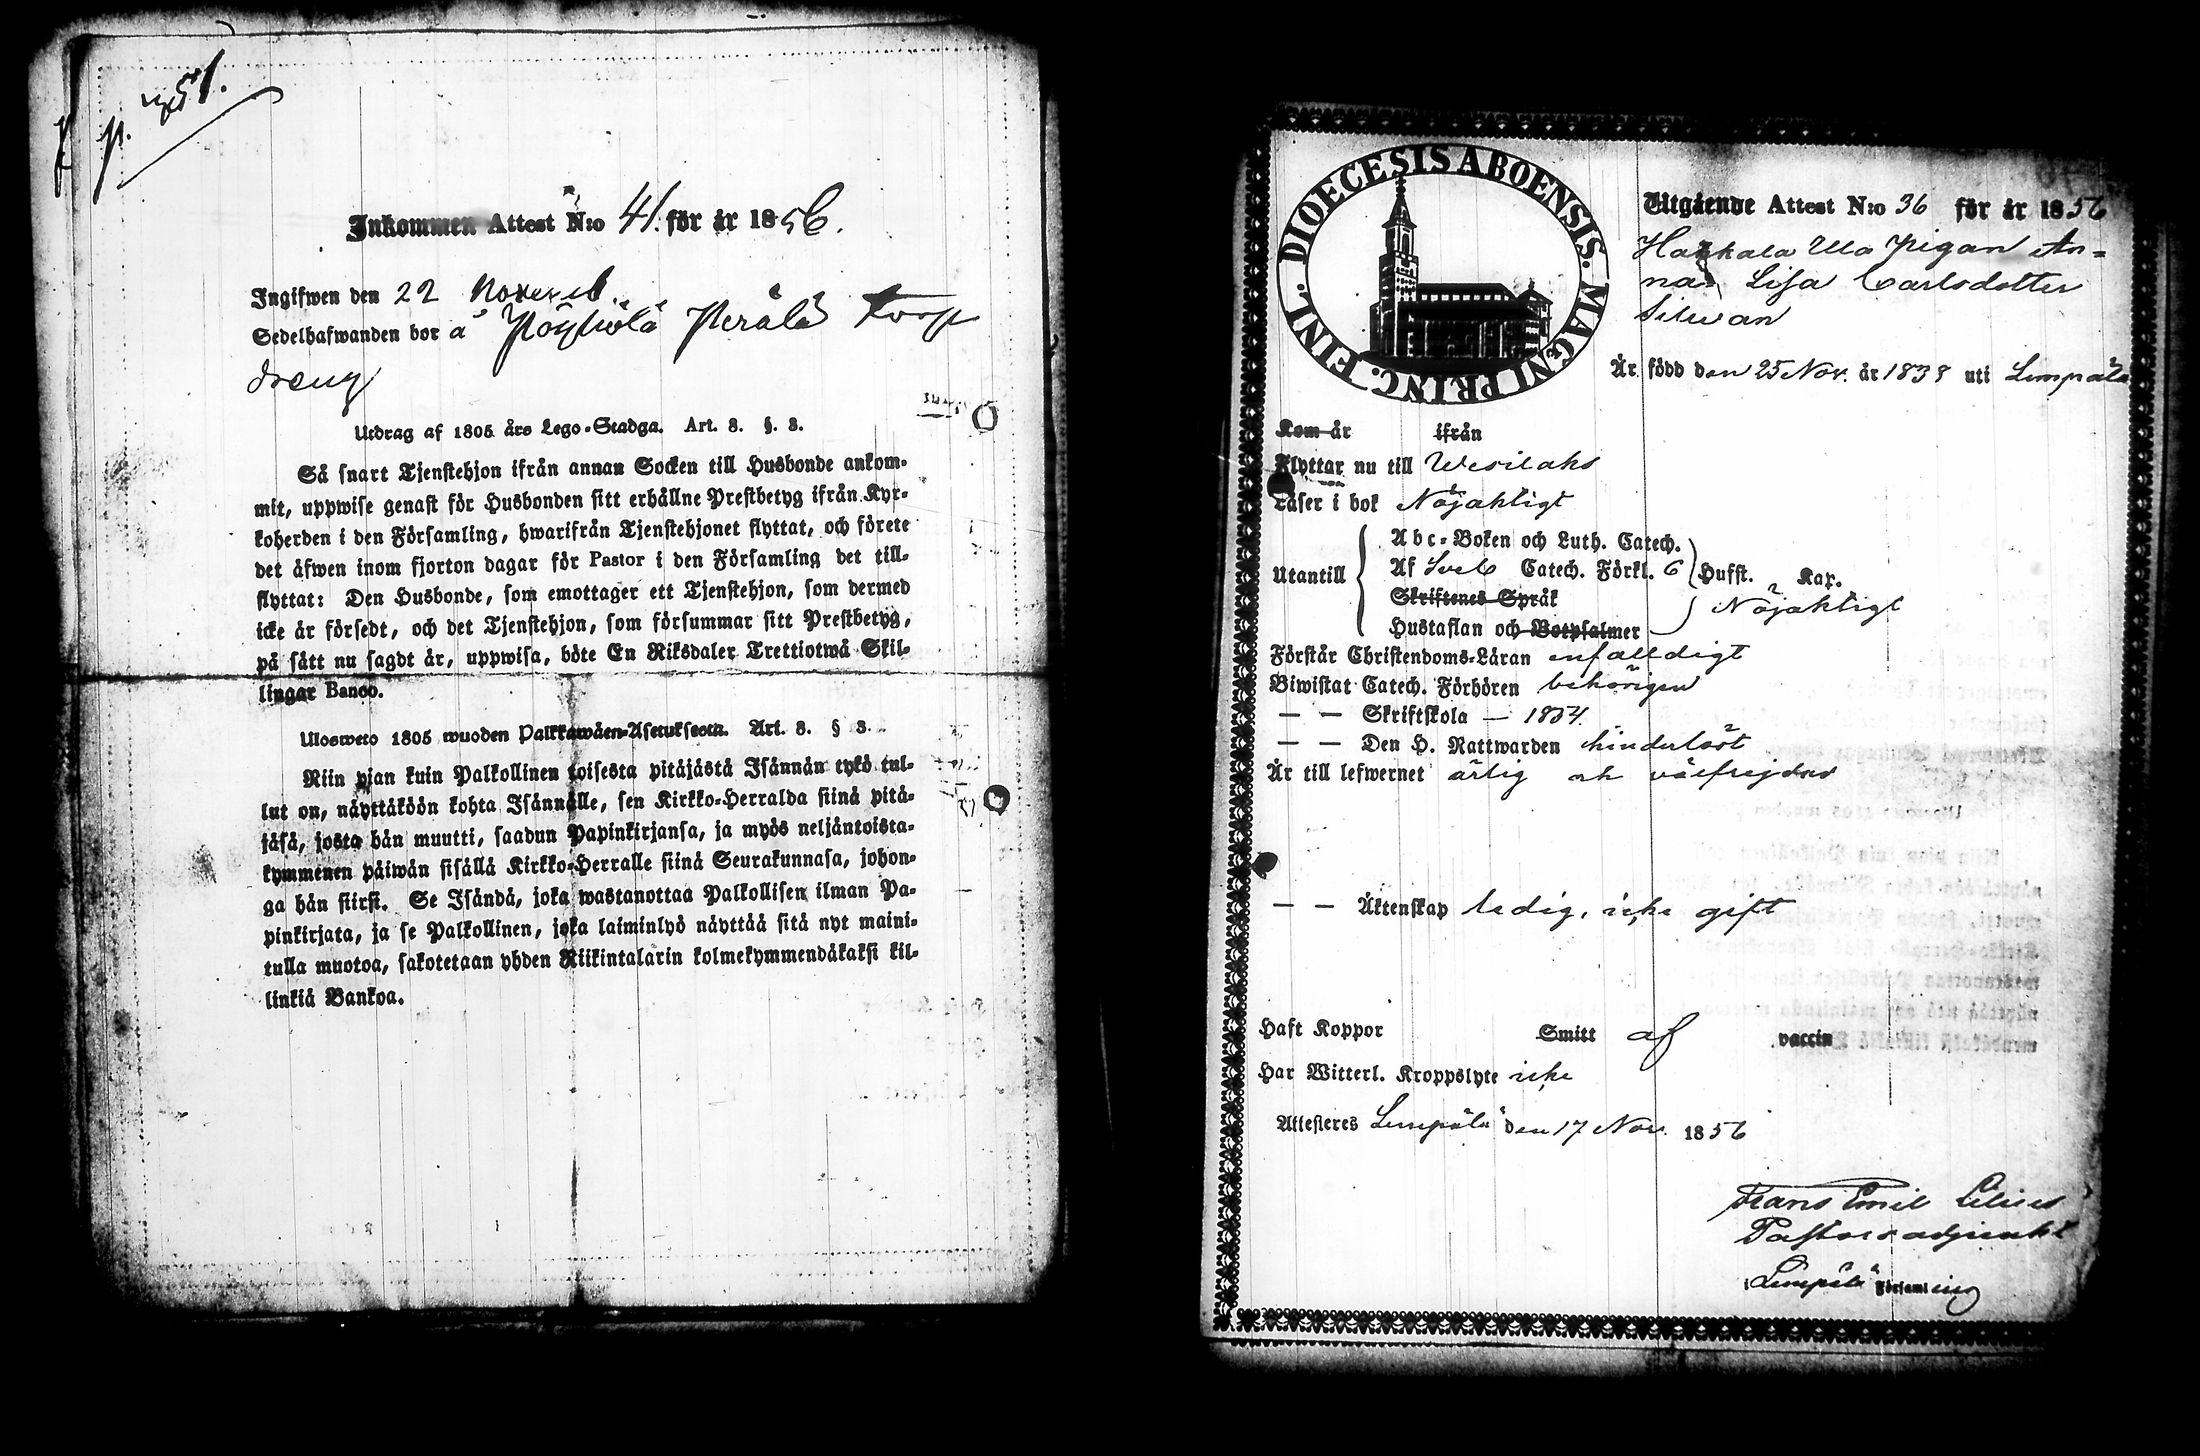 p. 351.
Inkommen Attest N:o 41. för år 1856.
Ingifwen den 22 Novemb.
Sedelhafwanden bor å Pöyhölä Perälä torp
dreng
Utdrag af 1805 års Lego-Stadga. Art. 8. §. 3.
Så snart Tjenstehjon ifrån annan Socken till Husbonde ankom-
mit, uppwise genast för Husbonden sitt erhållne Prestbetyg ifrån Kyr-
koherden i den Församling, hwarifrån Tjenstehjonet flyttat, och förete
det äfwen inom fjorton dagar för Pastor i den Församling det till-
flyttat: Den Husbonde, som emottager ett Tjenstehjon, som dermed
icke är försedt, och det Tjenstehjon, som försummar sitt Prestbetyg,
på sätt nu sagdt är, uppwisa, böte En Riksdaler Trettiotwå Skil-
lingar Banco.
Ulosweto 1805 wuoden Palkkawäen-Asetuksesta. Art. 8. § 3.
Niin pian kuin Palkollinen toisesta pitäjästä Isännän tykö tul-
lut on, näyttäköön kohta Isännälle, sen Kirkko-Herralda siinä pitä-
jäsä, josta hän muutti, saadun Papinkirjansa, ja myös neljäntoista-
kymmenen päiwän sisällä Kirkko-Herralle siinä Seurakunnasa, johon-
ga hän siirsi. Se Isändä, joka wastanottaa Palkollisen ilman Pa-
pinkirjata, ja se Palkollinen, joka laiminlyö näyttää sitä nyt maini-
tulla muotoa, sakotetaan yhden Riikintalarin kolmekymmendäkaksi kil-
linkiä Bankoa.
DIOECESIS ABOENSIS. MAGNI PRINC. FINL.
Utgående Attest N:o 36 för år 1856
Hakkala Ulla Pigan An-
na Lisa Carlsdotter
Silwan
Är född den 25 Nov. år 1838 uti Lempälä
Kom år ifrån
Flyttar nu till Wesilaks
Läser i bok Nöjaktigt
Utantill
Abc-Boken och Luth. Catech.
Af Sveb Catech. Förkl. 6 Hufst. Kap.
Skriftenes Språk
Nöjaktigt
Hustaflan och Botpsalmer
Förstår Christendoms-Läran enfaldigt
Biwistat Catech. Förhören behörigen
— — Skriftskola — 1854.
— — Den H. Nattwarden hinderlöst
Är till lefwernet ärlig och välfrejdad
— — Äktenskap ledig, icke gift
Haft Koppor Smitt af vaccin
Har Witterl. Kroppslyte icke
Attesteres Lempälä den 17 Nov. 1856
Frans Emil
Pastorsadjunkt
Lempälä Församling